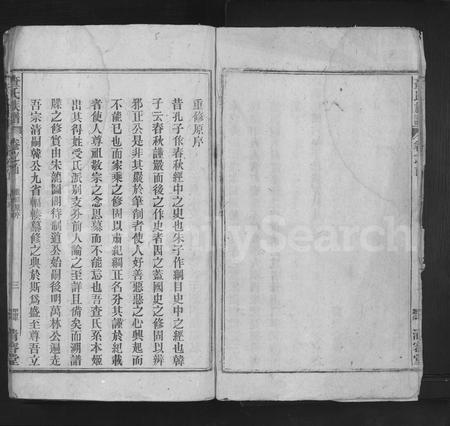 重修原序
昔孔子作春秋經中之史也朱子作綱目史中之經也韓
子云春秋謹嚴而後之作史者因之蓋國史之修固以辨
邪正公是非其嚴於筆削者使人好善惡惡之心興起而
不能已也而家乘之修固以肅紀綱正名分其謹於紀載
者使人尊祖敬宗之念思慕而不能忘也吾查氏系本姬
出其得姓受氏派別支分前人論之至詳且備矣而溯譜
牒之修實由朱龍圖閣待制道公始嗣後明萬林公遍走
吾宗清嗣韓公九省輶軒墓修之典於斯爲盛至尊吾立
查氏族譜
卷之首
三
清容堂
FamilySearch